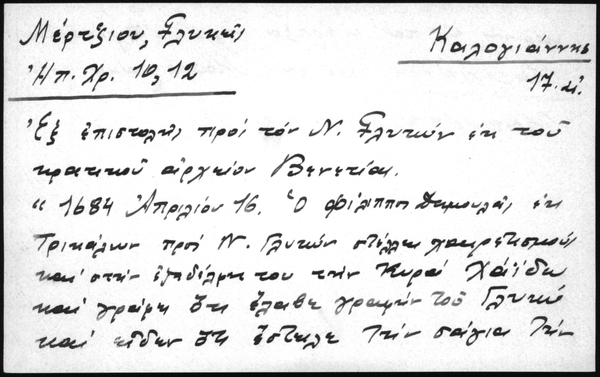 Μέρτζιου, Γλυκεῖς
Ἠπ. Χρ. 10, 12
Καλογιάννης
17. αἰ.
Ἐξ ἐπιστολῆς πρὸς τὸν Ν. Γλυκὺν ἐκ τοῦ
κρατικοῦ ἀρχείου Βενετίας.
“ 1684 Ἀπριλίου 16. Ὁ Φίλιππος Δημουλᾶς ἐκ
Τρικάλων πρὸς Ν. Γλυκὺν στέλλει χαιρετισμούς
καὶ στὴν ἐξαδέλφη του τὴν Κυρὰ Χάϊδω
καὶ γράφει ὅτι ἔλαβε γραφὴν τοῦ Γλυκύ
καὶ εἶδεν ὅτι ἔστειλε τὴν σάγια τὴν